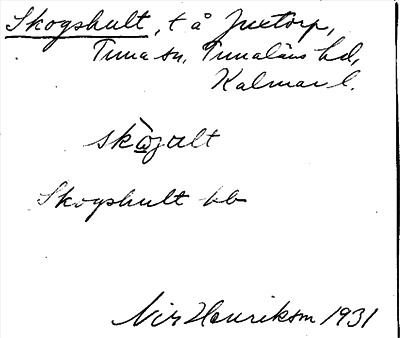 Skogshult, t å Juxtorp,
Tuna sn, Tunaläns hd,
Kalmar l.
skògalt
Skogshult bb
Nis Henrikson 1931